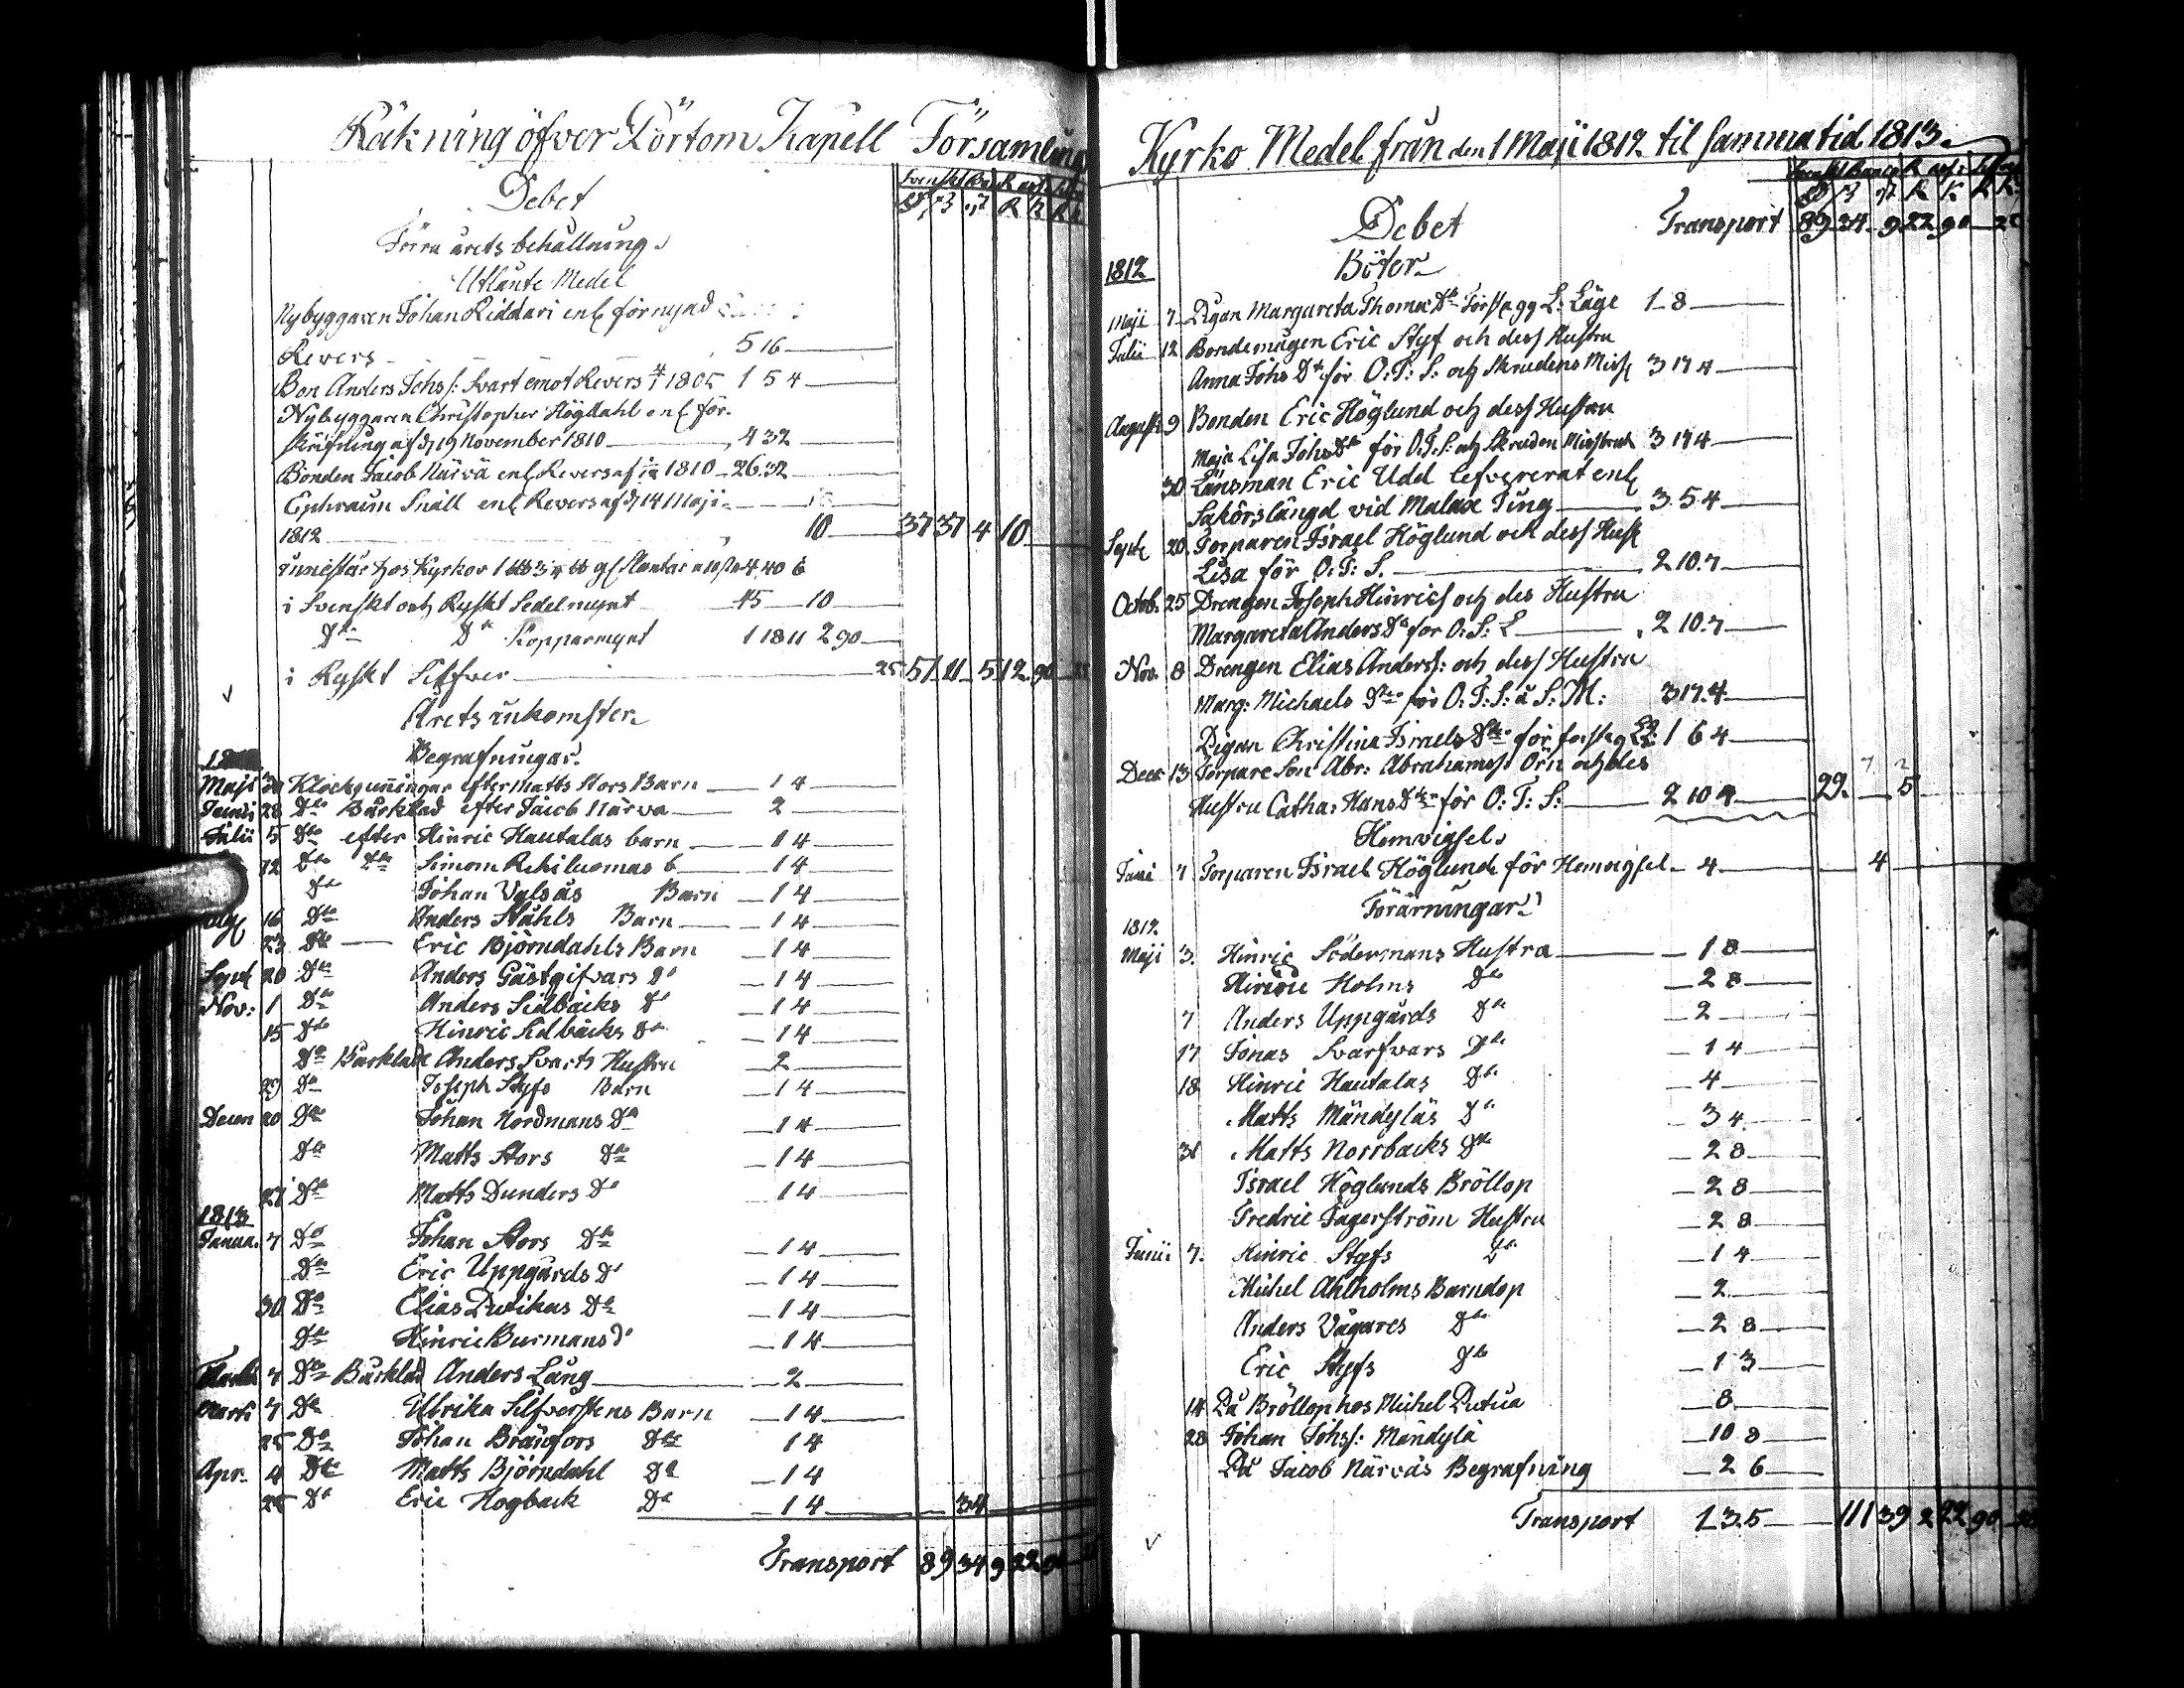 Räkning öfver Pörtom Kapell Församlings
Debet
Svenskt Banco R
Förra årets behållning.
Utlånte Medel
Nybyggaren Johan Riddari enl förnyad
Revers 5 16
Bon Anders Johs: Svart emot Revers 1805 1 5 4
Nybyggaren Christopher Högdahl enl för-
skrifning af d 19 November 1810 4 32
Bonden Jacob Närvä enl Revers af 1810 26.32
Ephraim Snäll enl Revers af d 14 Maji
1812 10 37 37 4 10
4 40 6
i Svenskt och Ryskt Sedelmynt 45 10
Do Do Kopparmynt 1 18 11 2 90
i Ryskt Silfver 25 51 21 5 12 90 25
Årets inkomster
Begrafningar.
Maji 30 Klockguningar efter Matts Stors Barn 1 4
Junii 28 Do Bårklad efter Jacob Närva 2
Julii 5 Do efter Hinric Hautalas barn 1 4
12 Do Do Simom Rekiluomas b 1 4
Do Johan Valsås Barn 1 4
Aug 16 Do Anders Ståhls Barn 1 4
23 Do Eric Björndahls Barn 1 4
Sept 20 Do Anders Gästgifvars Do 1 4
Nov: 1 Do Anders Sidbäcks Do 1 4
15 Do Hinric Sidbäcks Do 1 4
Do Bårklad Anders Svarts Hustru 2
29 Do Joseph Styfs Barn 1 4
Decem 20 Do Johan Nordmans Do 1 4
Do Matts Stors Do 1 4
27 Do Matts Dunders Do 1 4
1813
Janua. 7 Do Johan Stors Do 1 4
Do Eric Uppgårds Do 1 4
30 Do Elias Dutikas Do 1 4
Do Hinric Burmans Do 1 4
7 Do Bårklad Anders Lång 2
Marti 7 Do Ulrika Silfverstens Barn 1 4
25 Do Johan Brännfors Do 1 4
Apr. 4 Do Matts Björndahl Do 1 4
25 Do Eric Hogback Do 1 4 34
Transport 89 34 9 22 90
Kyrko Medel från den 1 Maji 1812 til samma tid 1813.
Svenskt Banco R
Debet Transport 89 34 9 22 90 25
1812 Böter
Maji 7 Pigan Margareta Thomæ Dr Första gg L: Läge 1 8
Julii 12 Bondemågen Eric Styf och dess Hustru
Anna Johs Dr för O: T: S: och Skrudens Miss 3 17 4
August 9 Bonden Eric Höglund och dess Hustru
Maja Lisa Johs Dr för O.T.S: och Skruden Missbruk 3 17 4
30 Länsman Eric Udd lefvererat enl
Saköreslängd vid Malax Ting 3 5 4
Sept 20 Torparen Israel Höglund och dess Hust
Lisa för O: T: S. 2 10.7
Octob. 25 Drengen Joseph Hinrics och des Hustru
Margareta Anders Dr för O: S: L 2 10.7
Nov. 8 Drengen Elias Anders: och dess Hustru
Marg: Michaels Dr för O: T: S: å S: M: 3 17.4
Pigan Christina Israels Dr för första g L: 1 6 4
Decr 13 Torpare Son Abr: Abrahams: Örn och des
Hustru Catha: Hans Dr för O: T: S: 2 10 4 29. 7 5
Hemvigsel.
Juni 7 Torparen Israel Höglund för Hemvigsel 4 4
Förärningar.
1812
Maji 3. Hinric Södermans Hustra 1 8
Hinric Holms Do 2 8
7 Anders Uppgårds Do 2
17 Jonas Svarfvars Do 1 4
18 Hinric Hautalas Do 4
Matts Mändyläs Do 3 4
31 Matts Norrbacks Do 2 8
Israel Höglunds Bröllop 2 8
Fredric Fagerström Hustru 2 8
Junii 7. Hinric Styfs Do 1 4
Michel Ahlholms Barndop 2
Anders Vägares Do 2 8
Eric Styfs Do 1 3
14 På Bröllop hos Michel Dutua 8
28 Johan Johs: Mändylä 10 8
På Jacob Närväs Begrafning 2 6
Transport 1 3.5 111 39 2 22 90 25